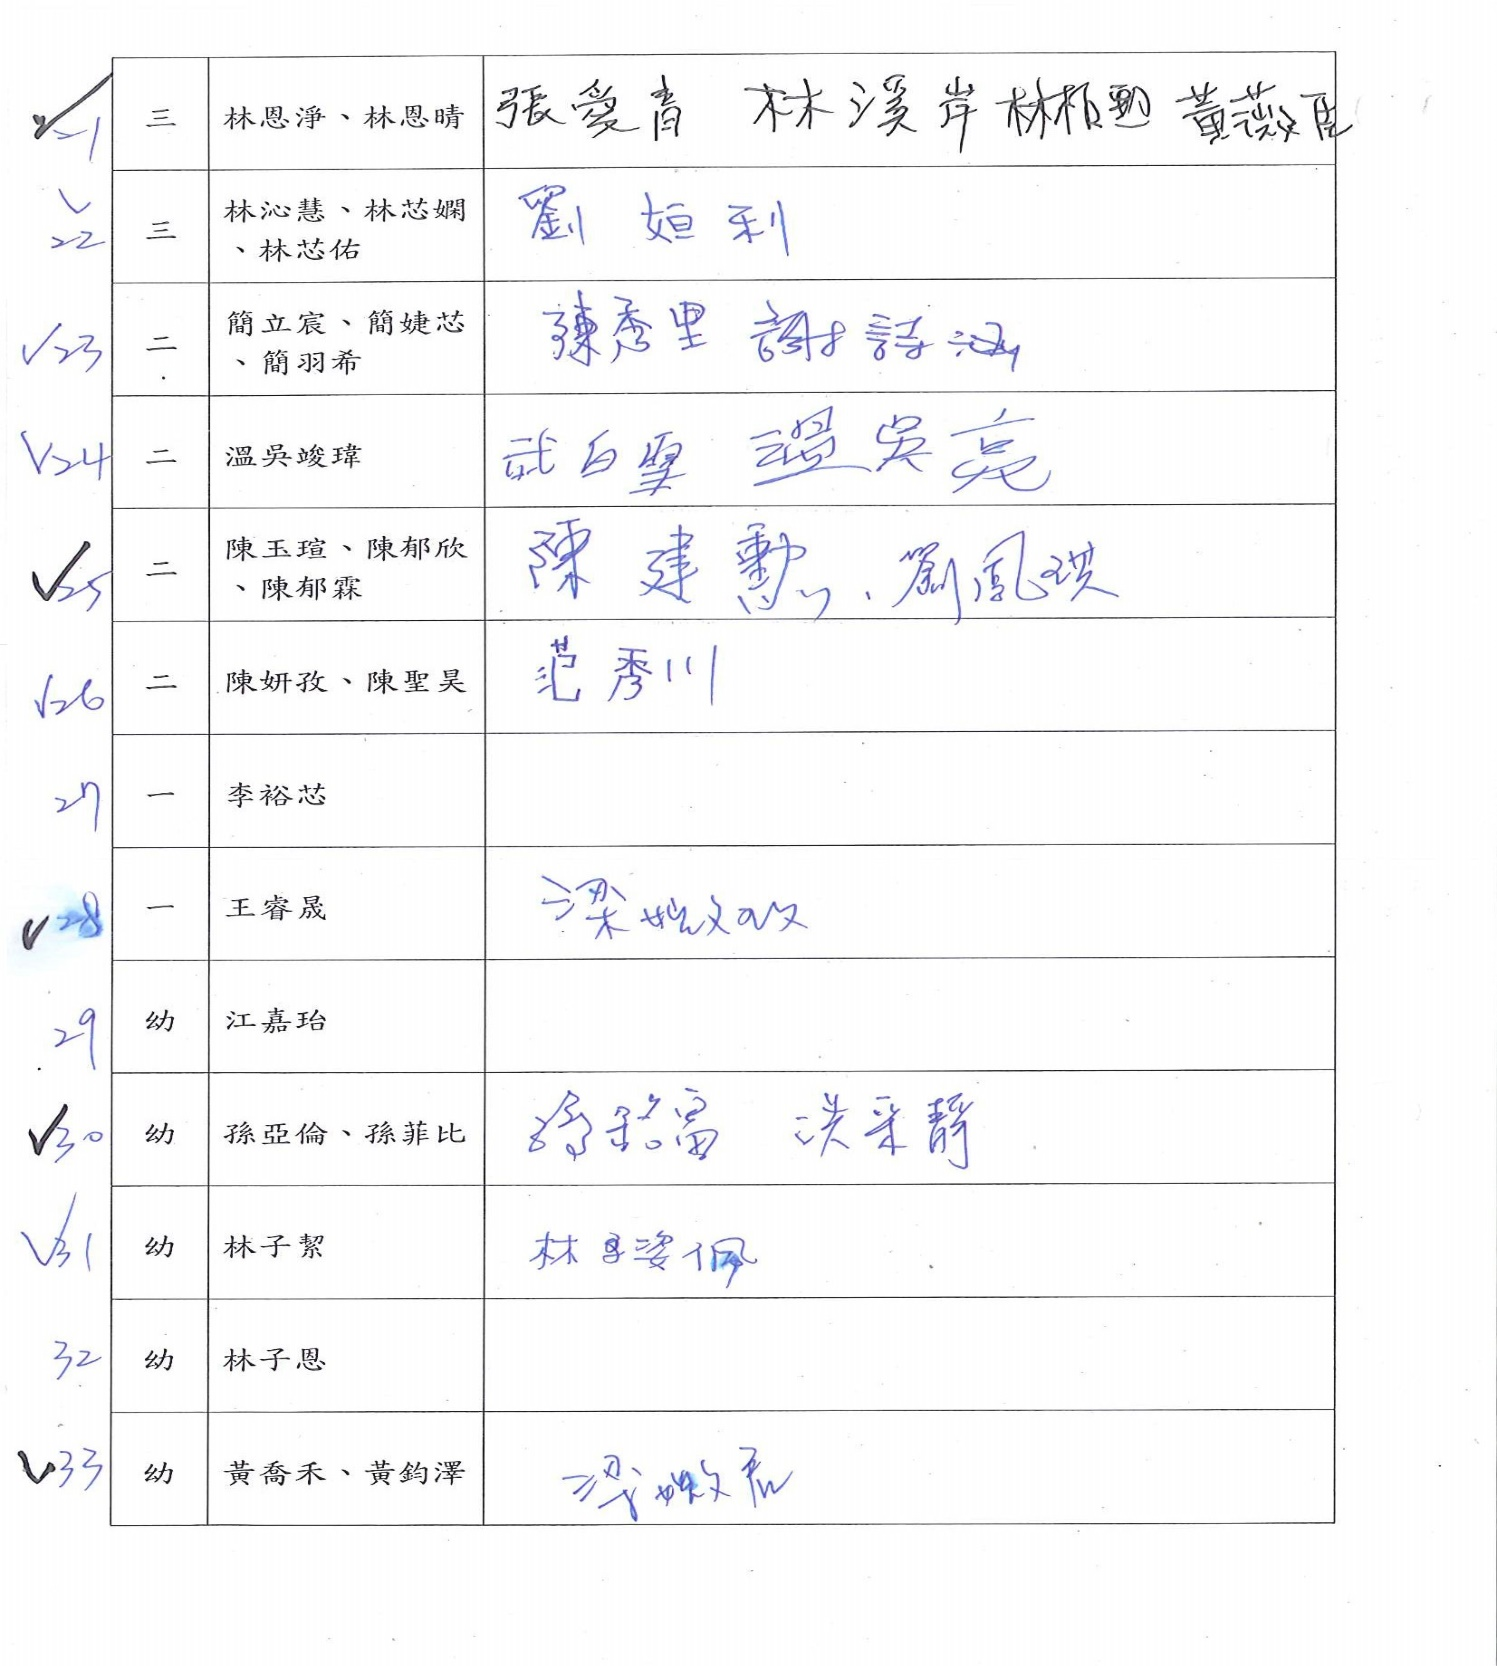 21 三 林恩淨、林恩晴 張愛青 林溪岸 黃薇
22 三 林沁慧、林芯嫻
、林芯佑 劉姮利
23 二 簡立宸、簡婕芯
、簡羽希 陳秀里 謝詩涵
24 二 溫吳竣瑋 武白雪 溫吳亮
25 二 陳玉瑄、陳郁欣
、陳郁霖 陳建勳、劉鳳琪
26 二 陳妍孜、陳聖昊 范秀川
27 一 李裕芯
28 一 王睿晟 梁
29 幼 江嘉珆
30 幼 孫亞倫、孫菲比 洪采靜
31 幼 林子絜 林姿佩
32 幼 林子恩
33 幼 黃喬禾、黃鈞澤 梁 君